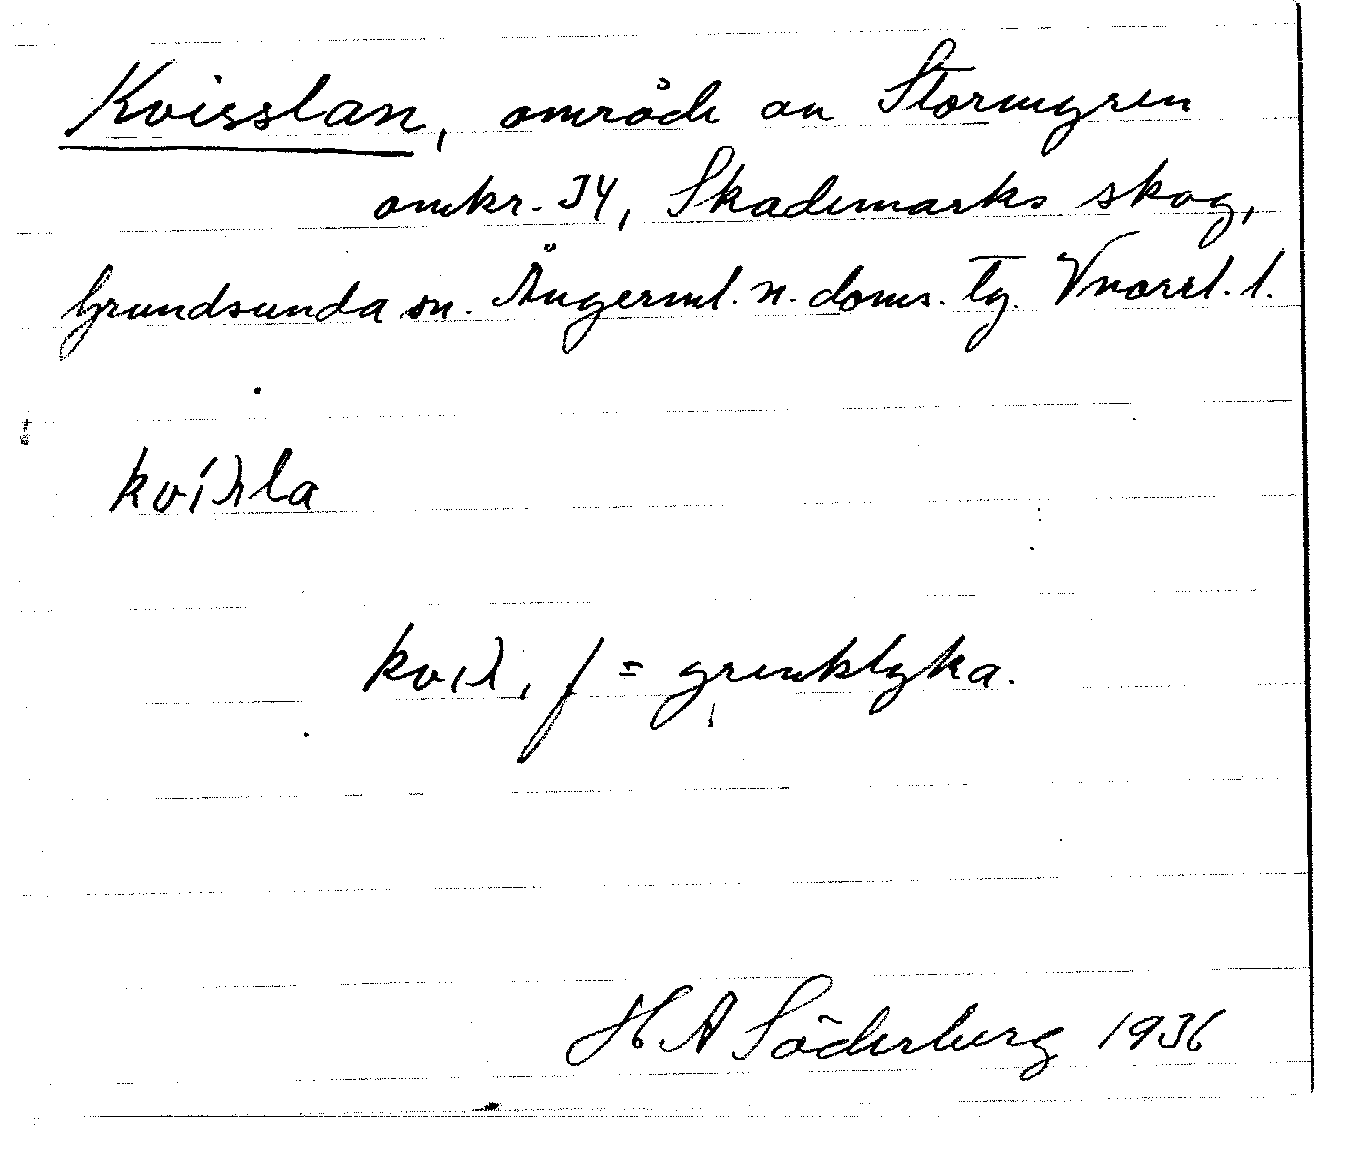 Kvisslan, område av Stormyren
omkr. J4, Skademarks skog,
Grundsunda sn. Ångerml. n. doms. tg. Vnorrl. l.
kvísla
kvisl, f = grenklyka.
H A Söderberg 1936